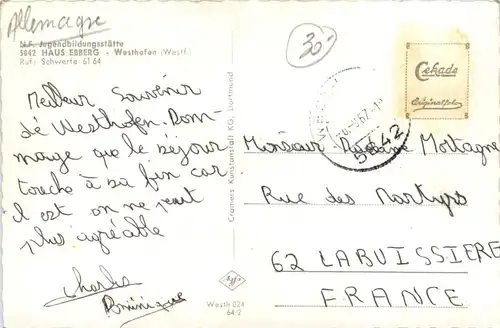 Allemagne
30-
N.F. Jugendbildungsstätte
5842 HAUS EBBERG - Westhofen (Westf.)
Ruf: Schwerte 61 64
Cekade
Originalfoto
5842
Meilleur Souvenir
dé Westhofen. Dom-
mage que le séjour
touche à sa fin car
il est on ne peut
plus agréable
Charles
Dominique
Cramers Kunstanstalt KG, Dortmund
Monsieur Mortagne
Rue des Martyrs
62 LABUISSIERE
FRANCE
Agfa
Westh 024
64:2